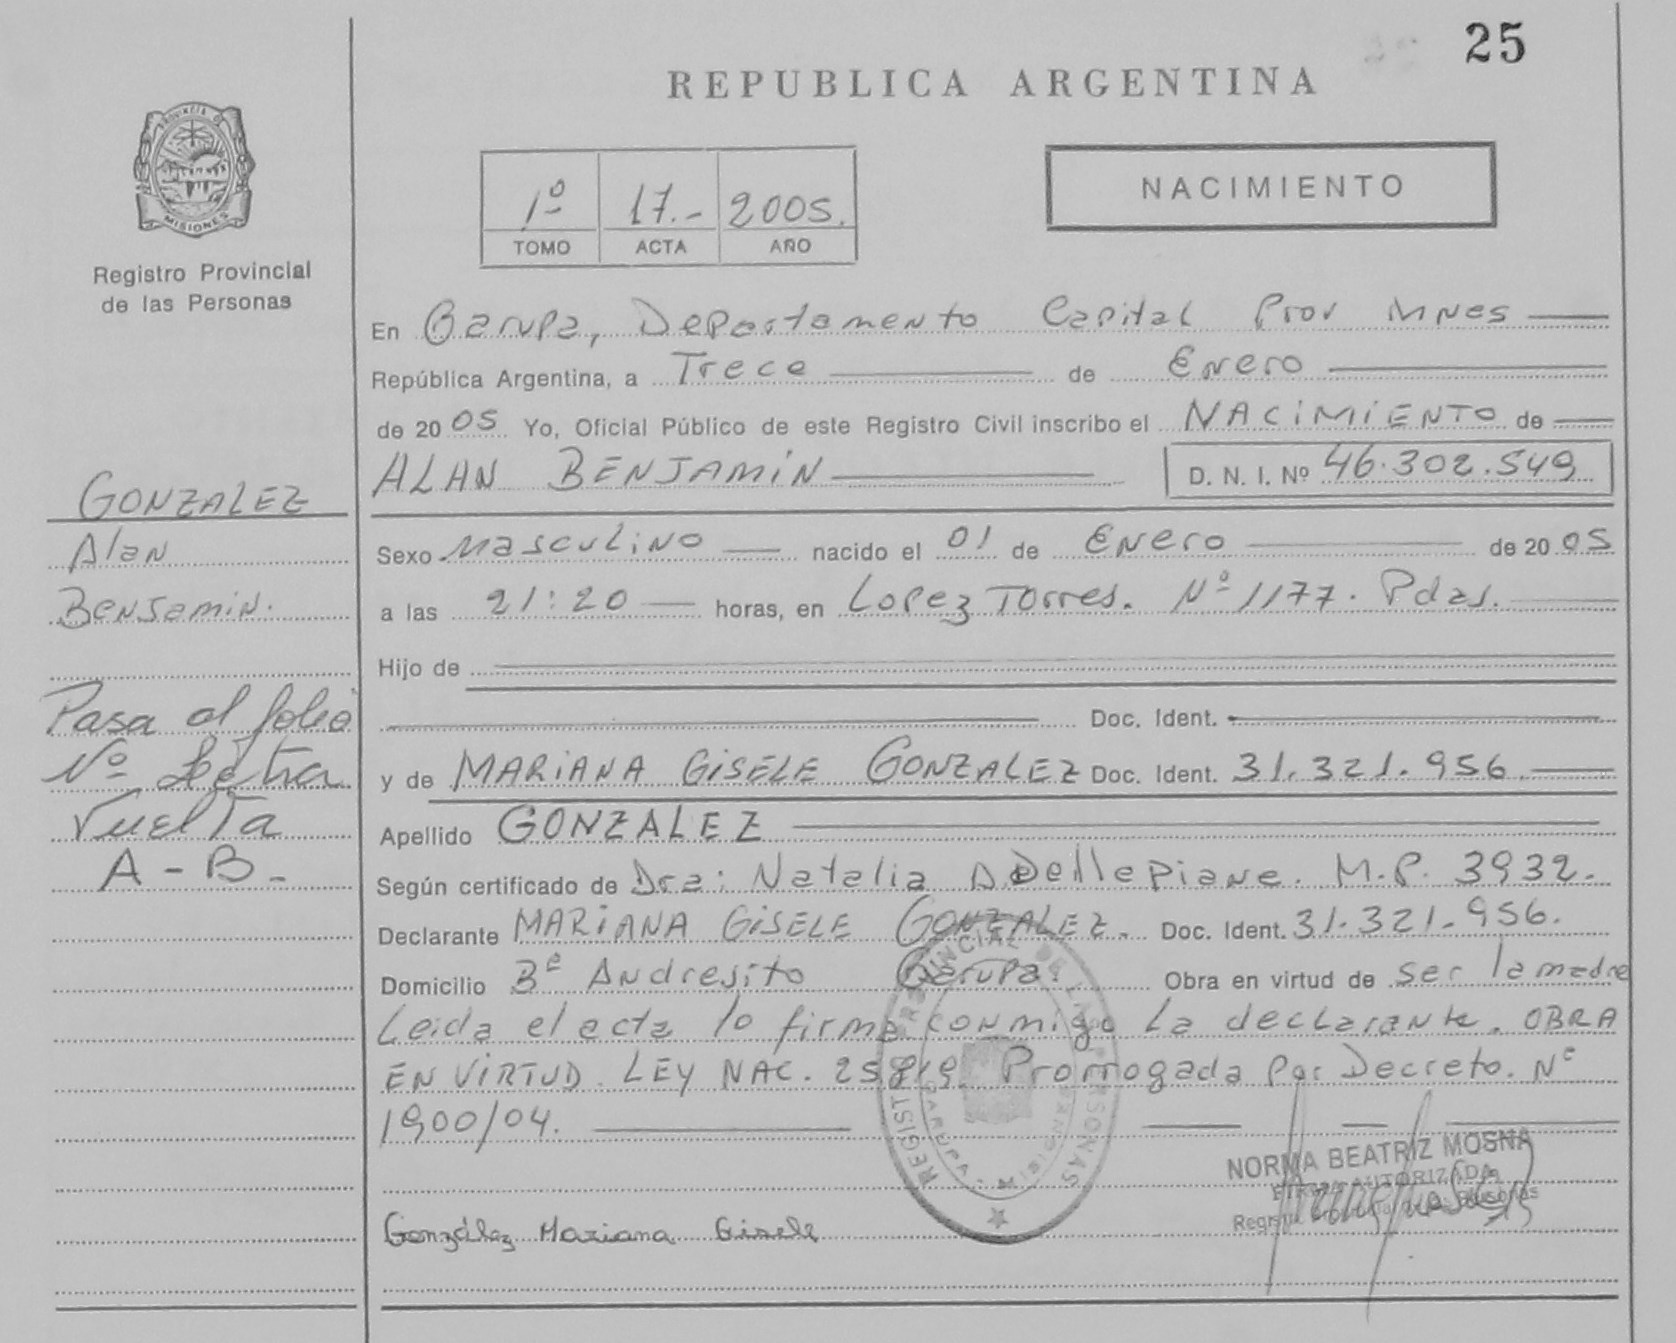 25
REPUBLICA ARGENTINA
PROVINCIA DE
MISIONES
Registro Provincial
de las Personas
1º 17.- 2005.
TOMO ACTA AÑO
NACIMIENTO
En Garupa, Departamento Capital Prov Mnes
República Argentina, a Trece de Enero
de 2005 Yo, Oficial Público de este Registro Civil inscribo el NACIMIENTO de
ALAN BENJAMIN D. N. I. Nº 46.302.549
GONZALEZ
Alan
Benjamin.
Sexo Masculino nacido el 01 de Enero de 2005
a las 21:20 horas, en Lopez Torres. Nº 1177. Pdas.
Hijo de
Doc. Ident.
y de MARIANA GISELE GONZALEZ Doc. Ident. 31.321.956
Apellido GONZALEZ
Pasa al folio
Nº Letra
Vuelta
A - B -
Según certificado de Dra: Natalia Dellepiane. M.P. 3932.
Declarante MARIANA GISELE GONZALEZ. Doc. Ident. 31.321.956.
Domicilio Bº Andresito Garupa. Obra en virtud de ser la madre
Leida el acta lo firma conmigo La declarante. OBRA
EN VIRTUD. LEY NAC. 25819 Promogada Por Decreto. Nº
1900/04.
REGISTRO PROVINCIAL DE LAS PERSONAS
GARUPA - MISIONES
NORMA BEATRIZ MOSNA
FIRMA AUTORIZADA
Registro Provincial de las Personas
González Mariana Gisele